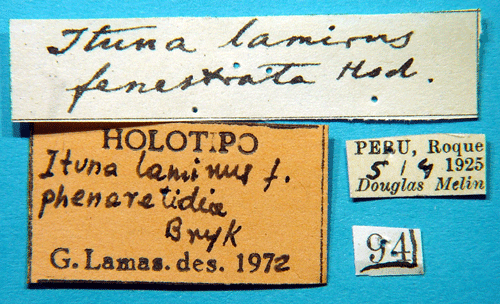 Ituna lamirus
fenestrata Hsd.
HOLOTIPO
Ituna lamirus f.
phenaretidia
Bryk
G. Lamas. des. 1972
PERU, Roque
5/4 1925
Douglas Melin
94